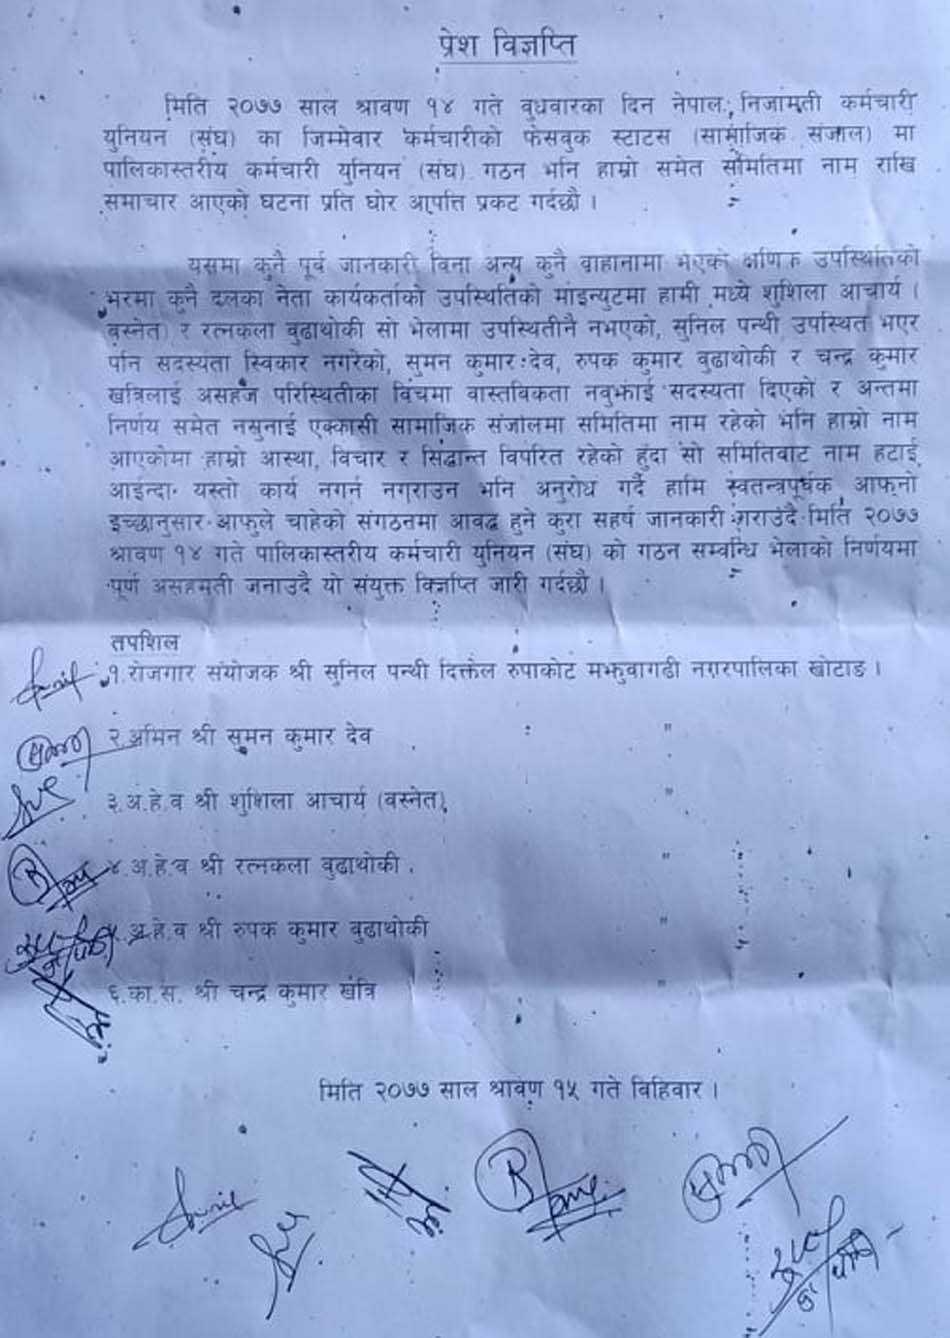 प्रेश विज्ञप्ति
मिति २०७७ साल श्रावण १४ गते वुधवारका दिन नेपाल, निजामती कर्मचारी
युनियन (संघ) का जिम्मेवार कर्मचारीको फेसवुक स्टाटस (सामाजिक संजाल) मा
पालिकास्तरीय कर्मचारी युनियन (संघ) गठन भनि हाम्रो समेत समितिमा नाम राखि
समाचार आएको घटना प्रति घोर आपत्ति प्रकट गर्दछौ ।
यसमा कुनै पूर्व जानकारी विना अन्य कुनै वाहानामा भएको क्षणिक उपस्थितिको
भरमा कुनै दलका नेता कार्यकर्ताको उपस्थितिको माइन्युटमा हामी मध्ये शुशिला आचार्य (
वस्नेत) र रत्नकला वुढाथोकी सो भेलामा उपस्थितीनै नभएको, सुनिल पन्थी उपस्थित भएर
पनि सदस्यता स्विकार नगरेको, सुमन कुमार देव, रुपक कुमार वुढाथोकी र चन्द्र कुमार
खत्रिलाई असहज परिस्थितीका विचमा वास्तविकता नवुझाई सदस्यता दिएको र अन्तमा
निर्णय समेत नसुनाई एक्कासी सामाजिक संजालमा समितिमा नाम रहेको भनि हाम्रो नाम
आएकोमा हाम्रो आस्था, विचार र सिद्धान्त विपरित रहेको हुंदा सो समितिवाट नाम हटाई
आईन्दा यस्तो कार्य नगर्न नगराउन भनि अनुरोध गर्दै हामि स्वतन्त्रपूर्वक आफ्नो
इच्छानुसार आफुले चाहेको संगठनमा आवद्ध हुने कुरा सहर्ष जानकारी गराउंदै मिति २०७७
श्रावण १४ गते पालिकास्तरीय कर्मचारी युनियन (संघ) को गठन सम्वन्धि भेलाको निर्णयमा
पूर्ण असहमती जनाउदै यो संयुक्त विज्ञप्ति जारी गर्दछौ ।
तपशिल
१.रोजगार संयोजक श्री सुनिल पन्थी दिक्तेल रुपाकोट मझुवागढी नगरपालिका खोटाङ ।
२.अमिन श्री सुमन कुमार देव "
३.अ.हे.व श्री शुशिला आचार्य (वस्नेत) "
४.अ.हे.व श्री रत्नकला वुढाथोकी "
अ.हे.व श्री रुपक कुमार वुढाथोकी "
६.का.स. श्री चन्द्र कुमार खत्रि "
मिति २०७७ साल श्रावण १५ गते विहिवार ।